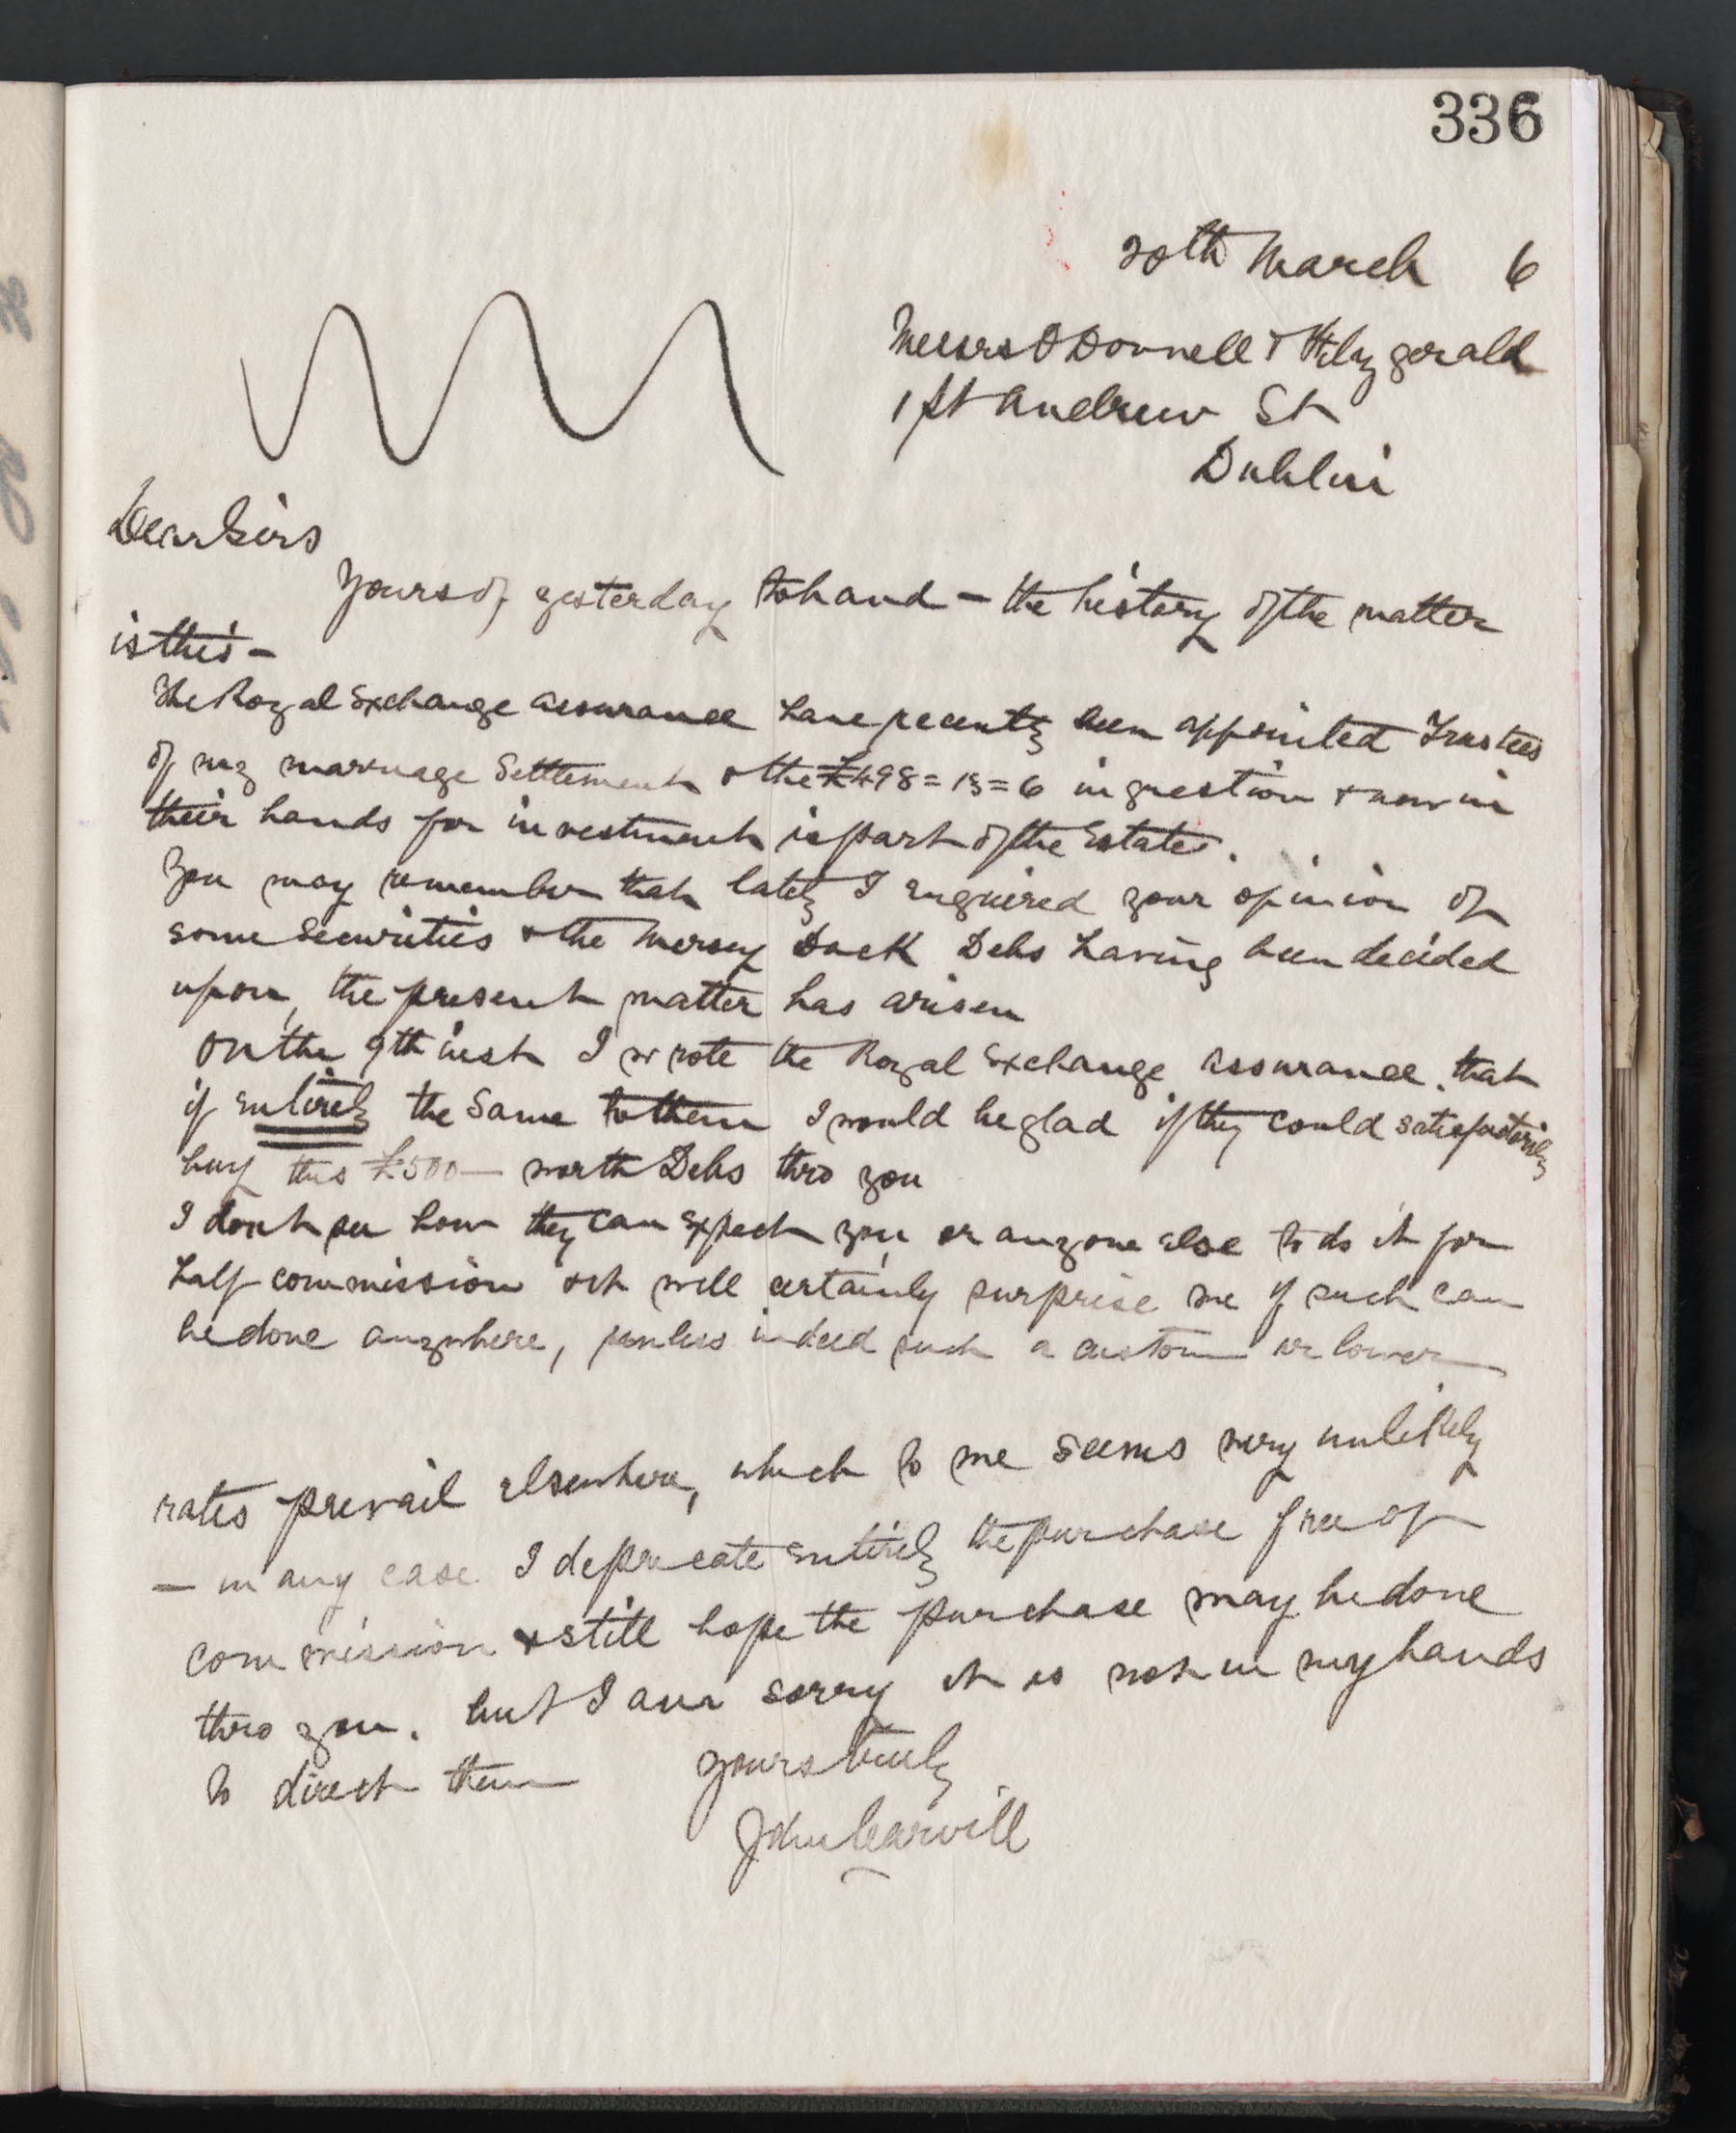 336
20th March 6
Messrs O Donnell & Fitzgerald
1 St Andrew St
Dublin
Dear Sirs
Yours of yesterday to hand - the history of the matter
is this -
The Royal Exchange Assurance have recently been appointed Trustees
of my marriage Settlement & the £498=15=6 in question & now in
their hands for investment is part of the Estate.
You may remember that lately I enquired your opinion of
some Securities & the Mersey Dock Debs having been decided
upon, the present matter has arisen
On the 9th inst I wrote the Royal Exchange Assurance that
if entirely the Same to them I would be glad if they could satisfactorily
buy this £500 — worth Debs thro you
I dont see how they can expect you or anyone else to do it for
half commission & it will certainly surprise me if such can
be done anywhere, unless indeed such a custom or lower
rates prevail elsewhere, which to me seems very unlikely
- in any case I deprecate entirely the purchase free of
commission & still hope the purchase may be done
thro you. but I am sorry it is not in my hands
to direct them
yours truly
John Carvill